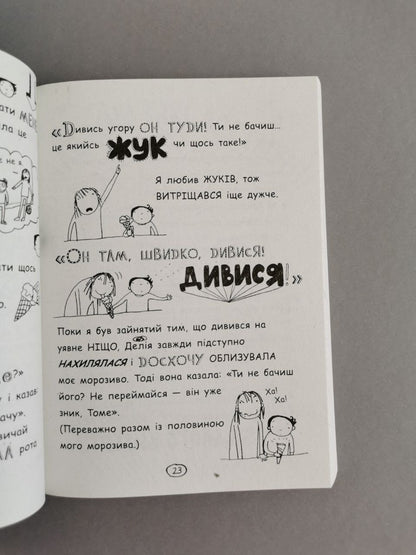 ати МЕНЕ
ла це
не я
ати щось
ю.
е?»
у і казав:
ачу».
вичай
рота
«Дивись угору ОН ТУДИ! Ти не бачиш...
це якийсь ЖУК чи щось таке!»
Я любив ЖУКІВ, тож
ВИТРІЩАВСЯ іще дужче.
«ОН ТАМ, ШВИДКО, ДИВИСЯ!
ДИВИСЯ!»
Поки я був зайнятий тим, що дивився на
уявне НІЩО, Делія завжди підступно
НАХИЛЯЛАСЯ і ДОСХОЧУ ОБЛИЗУВАЛА
моє морозиво. Тоді вона казала: «Ти не бачиш
його? Не переймайся — він уже
зник, Томе».
Ха!
Ха!
(Переважно разом із половиною
мого морозива.)
23